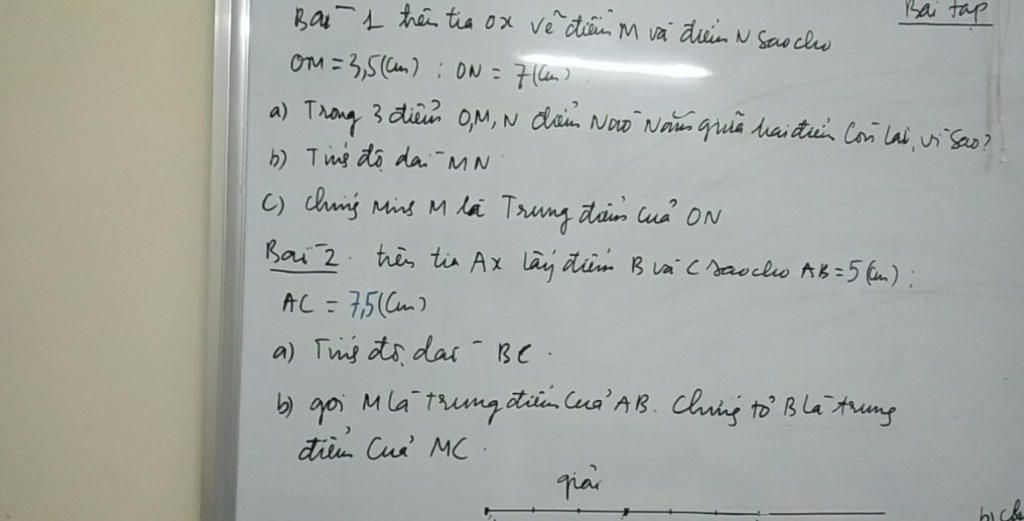 Bài tập
Bài 1 trên tia Ox vẽ điểm M và điểm N sao cho
OM = 3,5(cm) ; ON = 7(cm)
a) Trong 3 điểm O,M,N điểm Nào Nằm giữa hai điểm Còn lại, vì sao?
b) Tính độ dài MN
c) chứng minh M là Trung điểm của ON
Bài 2. trên tia Ax lấy điểm B và C sao cho AB = 5(cm);
AC = 7,5(cm)
a) Tính độ dài BC.
b) gọi M là trung điểm của AB. Chứng tỏ B là trung
điểm Của MC.
giải